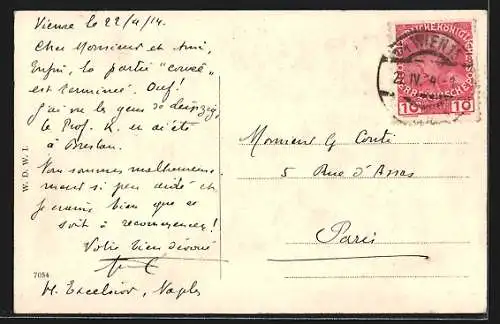 Vienne le 22/4/14.
Cher Monsieur et Ami,
Enfin, la partie "
est terminée. Ouf!
J'ai vu les gens de Leipzig,
le Prof. K. en a été
à Breslau.
Nous sommes malheureuse-
ment si peu aidé et
je crains bien que ce
soit à recommencer!
Votre bien dévoué
H. Excelsior, Naples
W. D. W. I.
7054
WIEN
10 10
Monsieur G Conti
5 Rue d'Assas
Paris